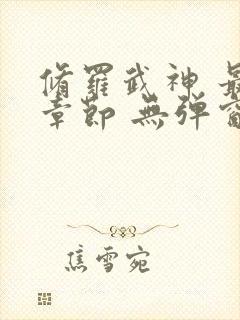 脩羅武神 最
章節 無彈窗
焦雪宛